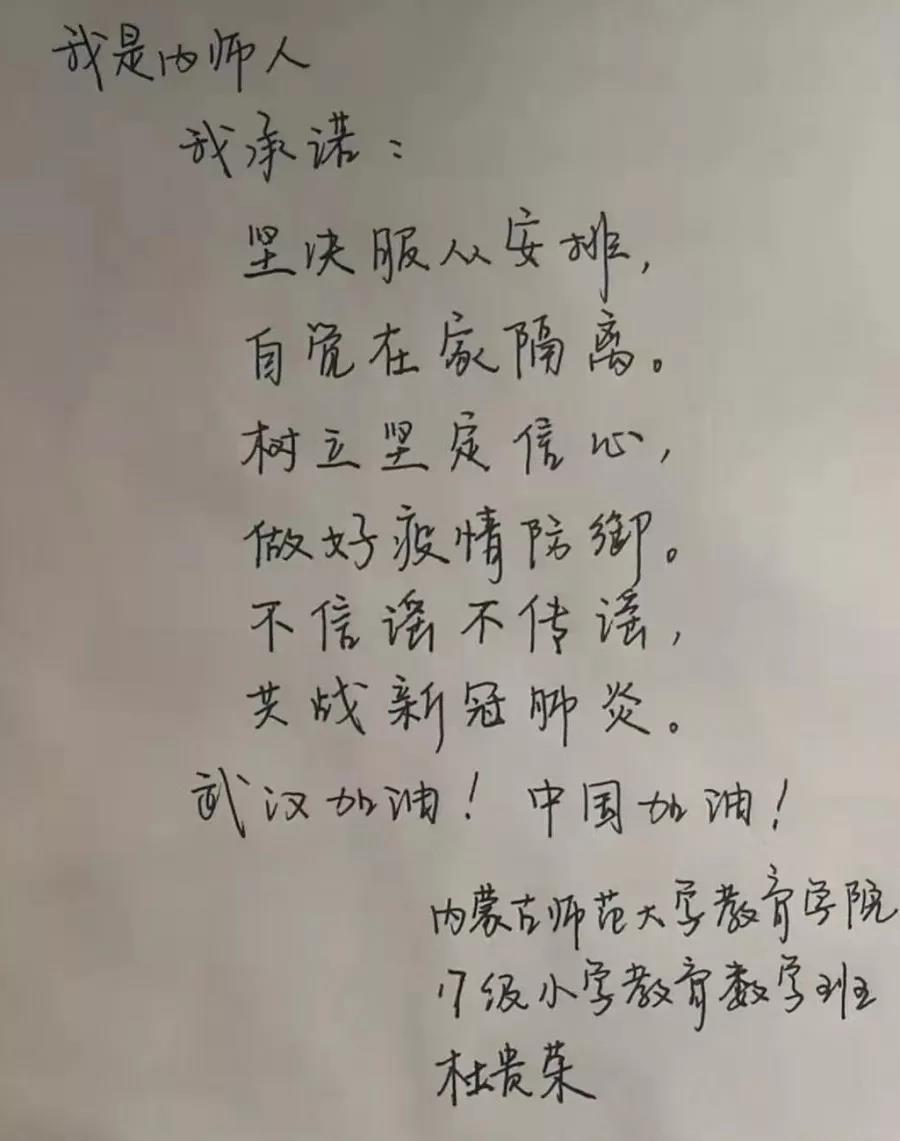 我是内师人
我承诺：
坚决服从安排，
自觉在家隔离。
树立坚定信心，
做好疫情防御。
不信谣不传谣，
共战新冠肺炎。
武汉加油！中国加油！
内蒙古师范大学教育学院
17级小学教育数学班
杜贵荣